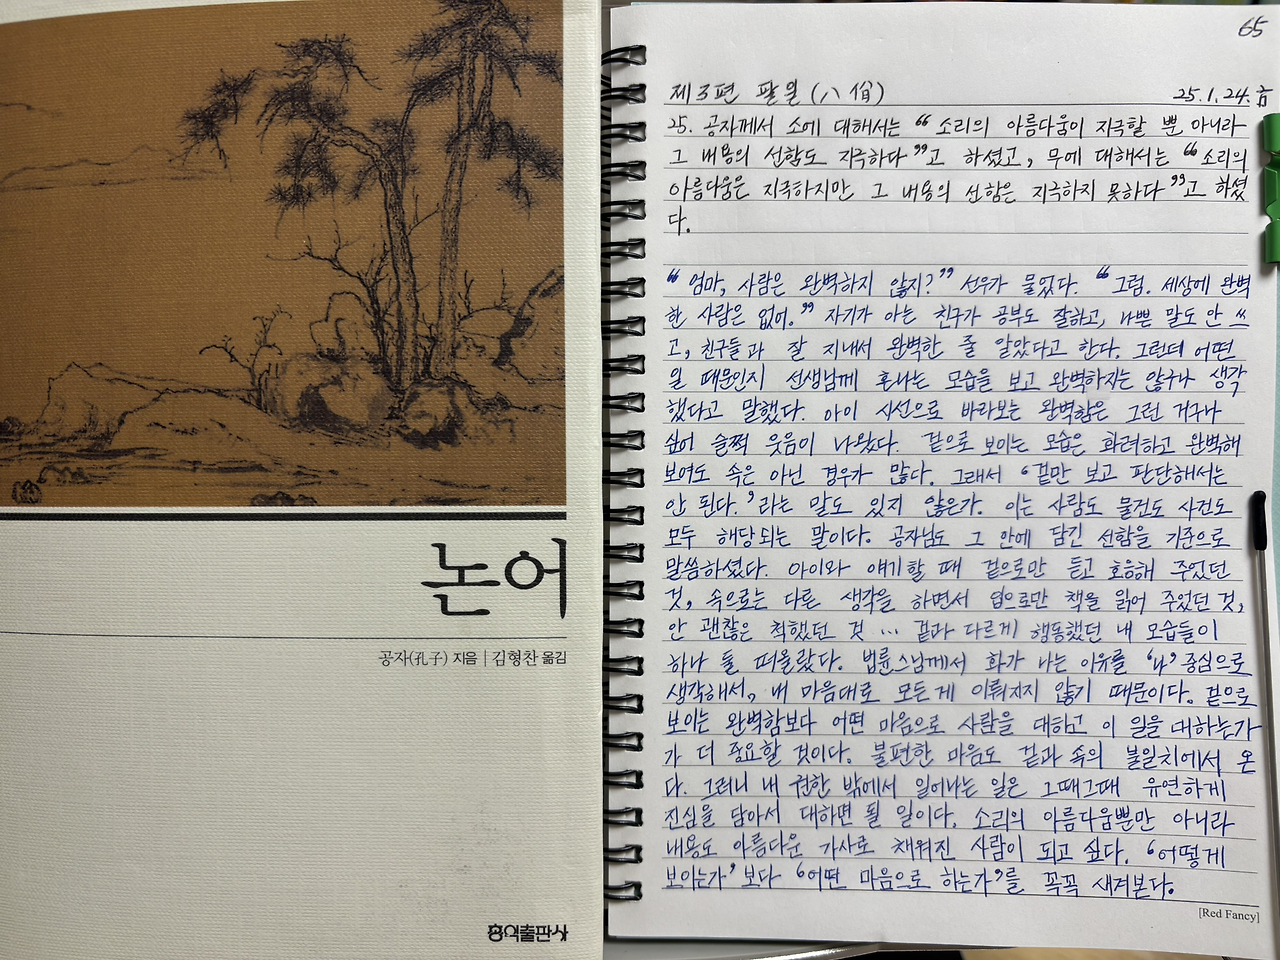 논어
공자(孔子) 지음 | 김형찬 옮김
홍익출판사
65
제3편 팔일 (八佾)
25.1.24.
25. 공자께서 소에 대해서는 “소리의 아름다움이 지극할 뿐 아니라
그 내용의 선함도 지극하다”고 하셨고, 무에 대해서는 “소리의
아름다움은 지극하지만 그 내용의 선함은 지극하지 못하다”고 하셨
다.
“엄마, 사람은 완벽하지 않지?” 선우가 물었다. “그럼. 세상에 완벽
한 사람은 없어.” 자기가 아는 친구가 공부도 잘하고, 나쁜 말도 안 쓰
고, 친구들과 잘 지내서 완벽한 줄 알았다고 한다. 그런데 어떤
일 때문인지 선생님께 혼나는 모습을 보고 완벽하지는 않구나 생각
했다고 말했다. 아이 시선으로 바라보는 완벽함은 그런 거구나
싶어 슬쩍 웃음이 나왔다. 겉으로 보이는 모습은 화려하고 완벽해
보여도 속은 아닌 경우가 많다. 그래서 ‘겉만 보고 판단해서는
안 된다.’라는 말도 있지 않은가. 이는 사람도 물건도 사건도
모두 해당되는 말이다. 공자님도 그 안에 담긴 선함을 기준으로
말씀하셨다. 아이와 얘기할 때 겉으로만 듣고 호응해 주었던
것, 속으로는 다른 생각을 하면서 입으로만 책을 읽어 주었던 것,
안 괜찮은 척했던 것 … 겉과 다르게 행동했던 내 모습들이
하나 둘 떠올랐다. 법륜스님께서 화가 나는 이유를 ‘나’ 중심으로
생각해서, 내 마음대로 모든게 이뤄지지 않기 때문이다. 겉으로
보이는 완벽함보다 어떤 마음으로 사람을 대하고 이 일을 대하는가
가 더 중요할 것이다. 불편한 마음도 겉과 속의 불일치에서 온
다. 그러니 내 권한 밖에서 일어나는 일은 그때그때 유연하게
진심을 담아서 대하면 될 일이다. 소리의 아름다움뿐만 아니라
내용도 아름다운 가사로 채워진 사람이 되고 싶다. ‘어떻게
보이는가’ 보다 ‘어떤 마음으로 하는가’를 꼭꼭 새겨본다.
[Red Fancy]